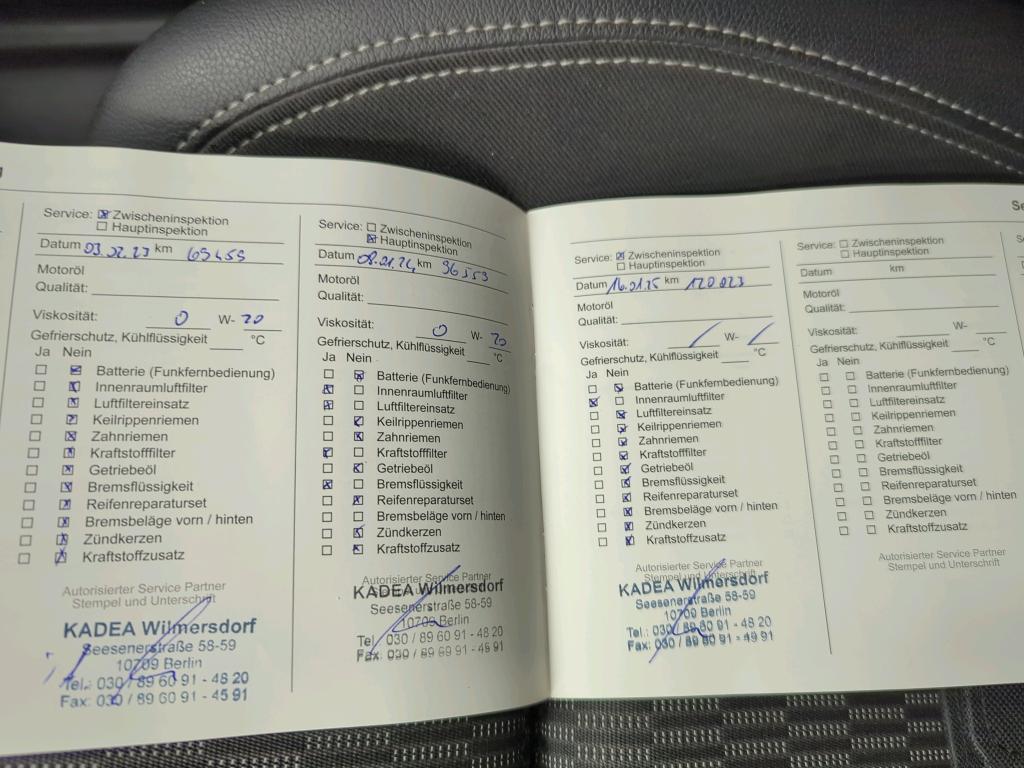 Se
Service: ☒ Zwischeninspektion
☐ Hauptinspektion
Datum 03.02.23 km 69459
Motoröl
Qualität:
Viskosität: 0 W- 20
Gefrierschutz, Kühlflüssigkeit °C
Ja Nein
☐ ☒ Batterie (Funkfernbedienung)
☐ ☒ Innenraumluftfilter
☐ ☒ Luftfiltereinsatz
☐ ☒ Keilrippenriemen
☐ ☒ Zahnriemen
☐ ☒ Kraftstofffilter
☐ ☒ Getriebeöl
☐ ☒ Bremsflüssigkeit
☐ ☒ Reifenreparaturset
☐ ☒ Bremsbeläge vorn / hinten
☐ ☒ Zündkerzen
☐ ☒ Kraftstoffzusatz
Autorisierter Service Partner
Stempel und Unterschrift
KADEA Wilmersdorf
Seesenerstraße 58-59
10709 Berlin
Tel.: 030 / 89 60 91 - 48 20
Fax: 030 / 89 60 91 - 45 91
Service: ☐ Zwischeninspektion
☒ Hauptinspektion
Datum 08.01.24 km 96553
Motoröl
Qualität:
Viskosität: 0 W- 20
Gefrierschutz, Kühlflüssigkeit °C
Ja Nein
☐ ☒ Batterie (Funkfernbedienung)
☒ ☐ Innenraumluftfilter
☒ ☐ Luftfiltereinsatz
☐ ☒ Keilrippenriemen
☐ ☒ Zahnriemen
☒ ☐ Kraftstofffilter
☐ ☒ Getriebeöl
☒ ☐ Bremsflüssigkeit
☐ ☒ Reifenreparaturset
☐ ☐ Bremsbeläge vorn / hinten
☐ ☒ Zündkerzen
☐ ☒ Kraftstoffzusatz
Autorisierter Service Partner
KADEA Wilmersdorf
Seesenerstraße 58-59
10709 Berlin
Tel.: 030 / 89 60 91 - 48 20
Fax: 030 / 89 60 91 - 45 91
Service: ☒ Zwischeninspektion
☐ Hauptinspektion
Datum 16.01.25 km 120023
Motoröl
Qualität:
Viskosität: / W- /
Gefrierschutz, Kühlflüssigkeit °C
Ja Nein
☐ ☒ Batterie (Funkfernbedienung)
☒ ☐ Innenraumluftfilter
☐ ☒ Luftfiltereinsatz
☐ ☒ Keilrippenriemen
☐ ☒ Zahnriemen
☐ ☒ Kraftstofffilter
☐ ☒ Getriebeöl
☐ ☒ Bremsflüssigkeit
☐ ☒ Reifenreparaturset
☐ ☒ Bremsbeläge vorn / hinten
☐ ☒ Zündkerzen
☐ ☒ Kraftstoffzusatz
Autorisierter Service Partner
Stempel und Unterschrift
KADEA Wilmersdorf
Seesenerstraße 58-59
10709 Berlin
Tel.: 030 / 89 60 91 - 48 20
Fax: 030 / 89 60 91 - 45 91
Service: ☐ Zwischeninspektion
☐ Hauptinspektion
Datum km
Motoröl
Qualität:
Viskosität: W-
Gefrierschutz, Kühlflüssigkeit °C
Ja Nein
☐ ☐ Batterie (Funkfernbedienung)
☐ ☐ Innenraumluftfilter
☐ ☐ Luftfiltereinsatz
☐ ☐ Keilrippenriemen
☐ ☐ Zahnriemen
☐ ☐ Kraftstofffilter
☐ ☐ Getriebeöl
☐ ☐ Bremsflüssigkeit
☐ ☐ Reifenreparaturset
☐ ☐ Bremsbeläge vorn / hinten
☐ ☐ Zündkerzen
☐ ☐ Kraftstoffzusatz
Autorisierter Service Partner
Stempel und Unterschrift